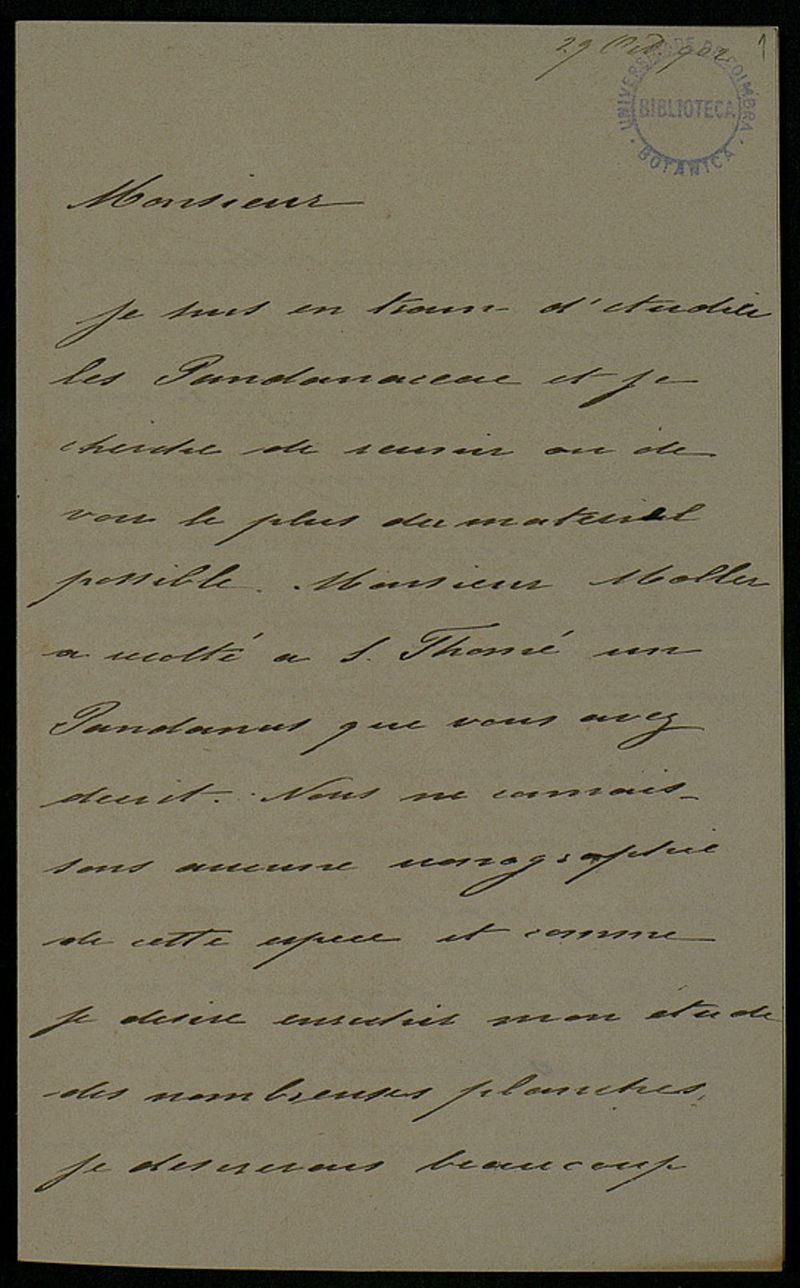 29 Oct. 902 1
UNIVERSIDADE DE COIMBRA
BIBLIOTECA
BOTANICA
Monsieur
Je suis en train d'etudier
les Pandanaceae et je
cherche de reunir ou de
voir le plus du materiel
possible. Monsieur Moller
a recolté a S. Thomé un
Pandanus que vous avez
decrit. Nous ne connais-
sons aucune iconographie
de cette espece et comme
je desire enrichir mon étude
des nombreuses planches,
je desirerais beaucoup